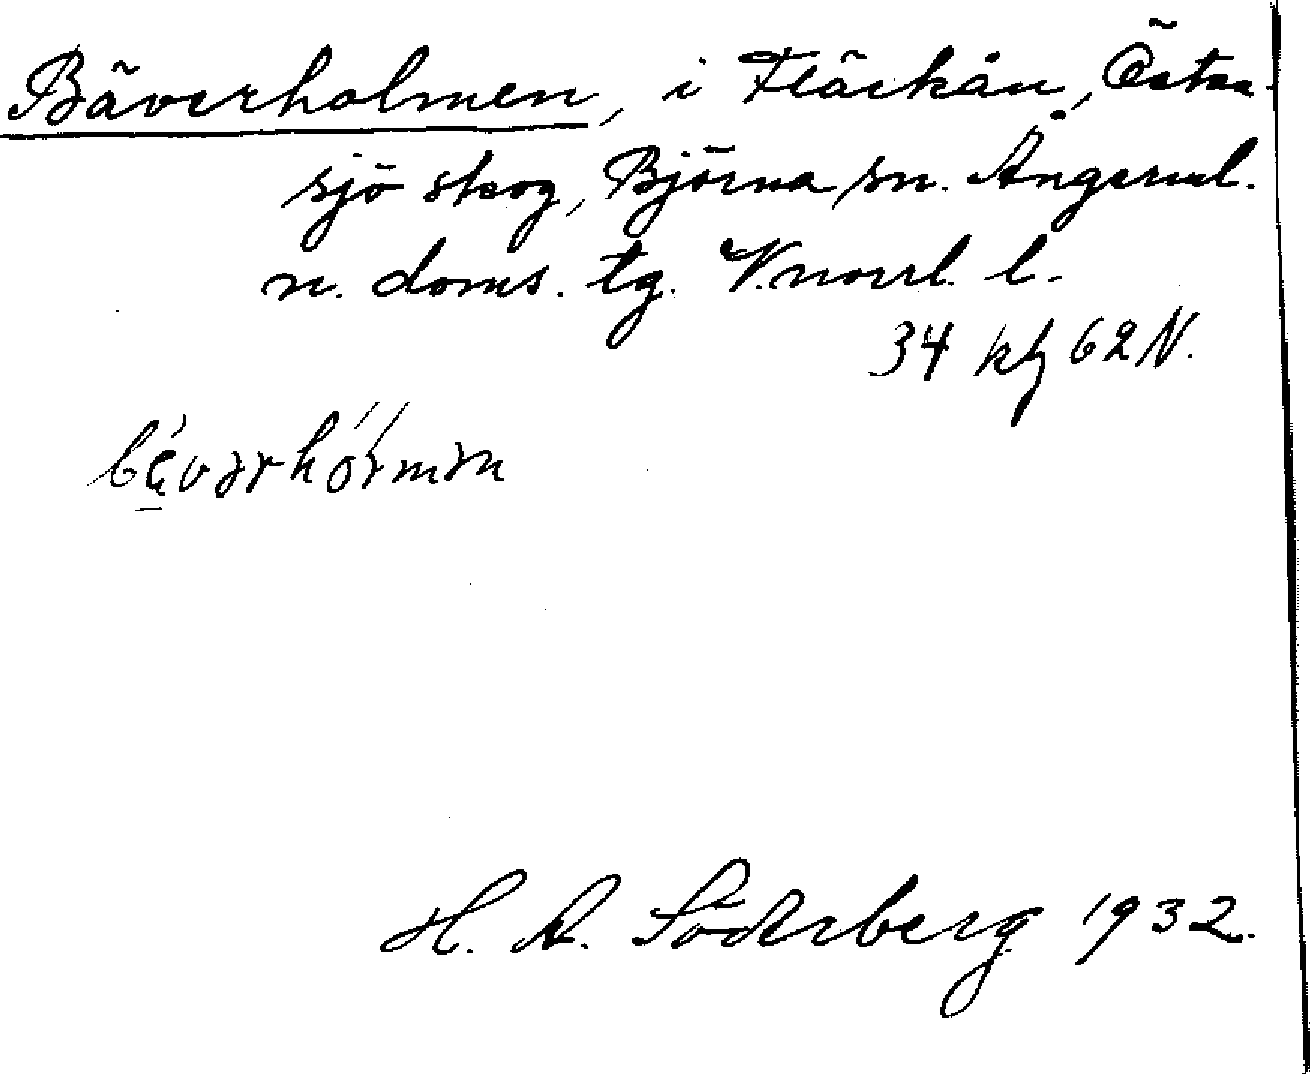 Bäverholmen, i Fläckån, Öster-
sjö skog, Björna sn. Ångerml.
n. doms. tg. V.norrl. l.
34 kf 62 N.
bę́vərhóḷ́mən
H. A. Söderberg 1932.